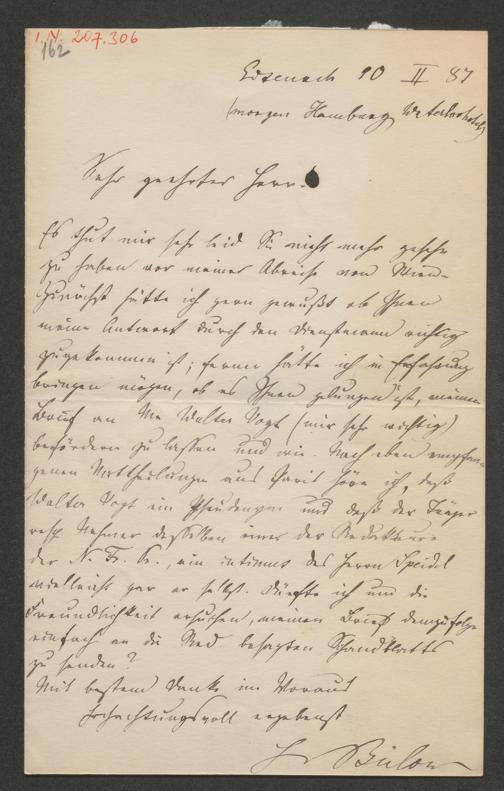 I.N. 207.306
162
Eisenach 10 II 87
(morgen Hamburg, Waterloohotel)
Sehr geehrter Herr.
Es thut mir sehr leid Sie nicht mehr gesehen
zu haben vor meiner Abreise von Wien –
Zunächst hätte ich gern gewußt ob Ihnen
meine Antwort durch den Dienstmann richtig
zugekommen ist; ferner hätte ich in Erfahrung
bringen mögen, ob es Ihnen gelungen ist, meinen
Brief an Walter Vogt (mir sehr wichtig)
befördern zu lassen und wie. Nach eben empfan-
genen Mittheilungen aus Paris höre ich, daß
Walter Vogt ein Pseudonym und daß der Träger
resp. Nehmer desselben einer der Redakteure
der N. Fr. Pr., ein intimus des Herrn Speidel
vielleicht gar er selbst. Dürfte ich um die
Freundlichkeit ersuchen, meinen Brief demzufolge
einfach an die Red. besagten Schandblatts
zu senden?
Mit bestem Danke im Voraus
hochachtungsvoll ergebenst
Bülow